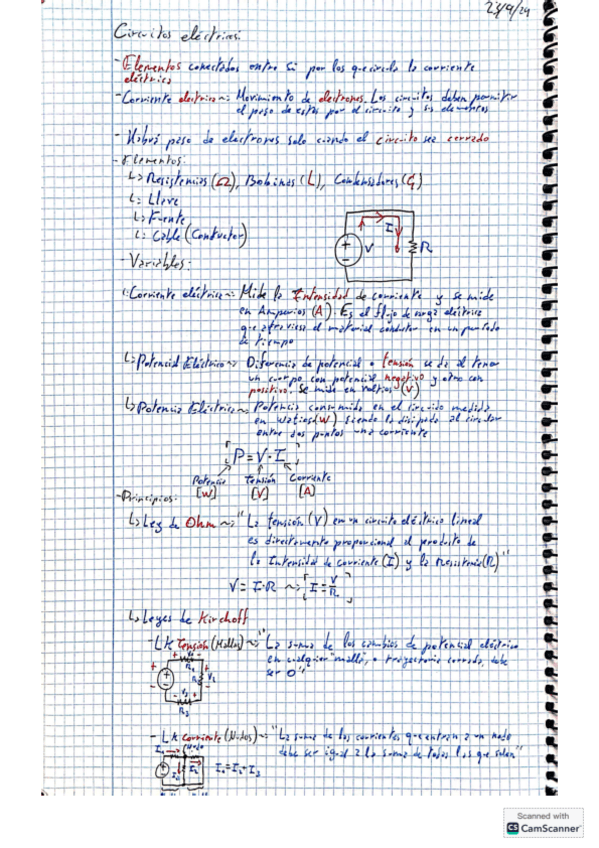 23/9/24
Circuitos eléctricos:
-Elementos conectados entre si por los que circula la corriente
eléctrica
-Corriente electrica ~: Movimiento de electrones. Los circuitos deben permitir
el paso de estos por el circuito y sus elementos
- Habrá paso de electrones solo cuando el circuito sea cerrado
-Elementos:
L> Resistencias (Ω), Bobinas (L), Condensadores (C)
L: Llave
L> Fuente
L: Cable (Conductor)
+
-
V
I
R
-Variables:
Corriente eléctrica ~: Mide la Intensidad de corriente y se mide
en Amperios (A). Es el flujo de carga eléctrica
que atraviesa el material conductor en un periodo
de tiempo
L: Potencial Eléctrico ~ Diferencia de potencial o tensión se da al tener
un cuerpo con potencial negativo y otro con
positivo. Se mide en voltios (V)
L> Potencia Eléctrica ~ Potencia consumida en el circuito medida
en watios (W) siendo la disipada al circular
entre dos puntos una corriente
P = V · I
Potencia Tensión Corriente
[W] [V] [A]
-Principios:
L> Ley de Ohm ~: "La tensión (V) en un circuito eléctrico lineal
es directamente proporcional al producto de
la Intensidad de corriente (I) y la Resistencia (R)"
V = I·R ~: I = V/R
L> Leyes de Kirchoff
-LK Tensión (Mallas) ~: "La suma de los cambios de potencial eléctrico
en cualquier malla, o trayectoria cerrada, debe
ser 0"
R1
R2
V2
R3
- LK Corriente (Nodos) ~: "La suma de las corrientes que entran a un nodo
debe ser igual a la suma de todas las que salen"
Nodo
I1 = I2 + I3
Scanned with
CS CamScanner